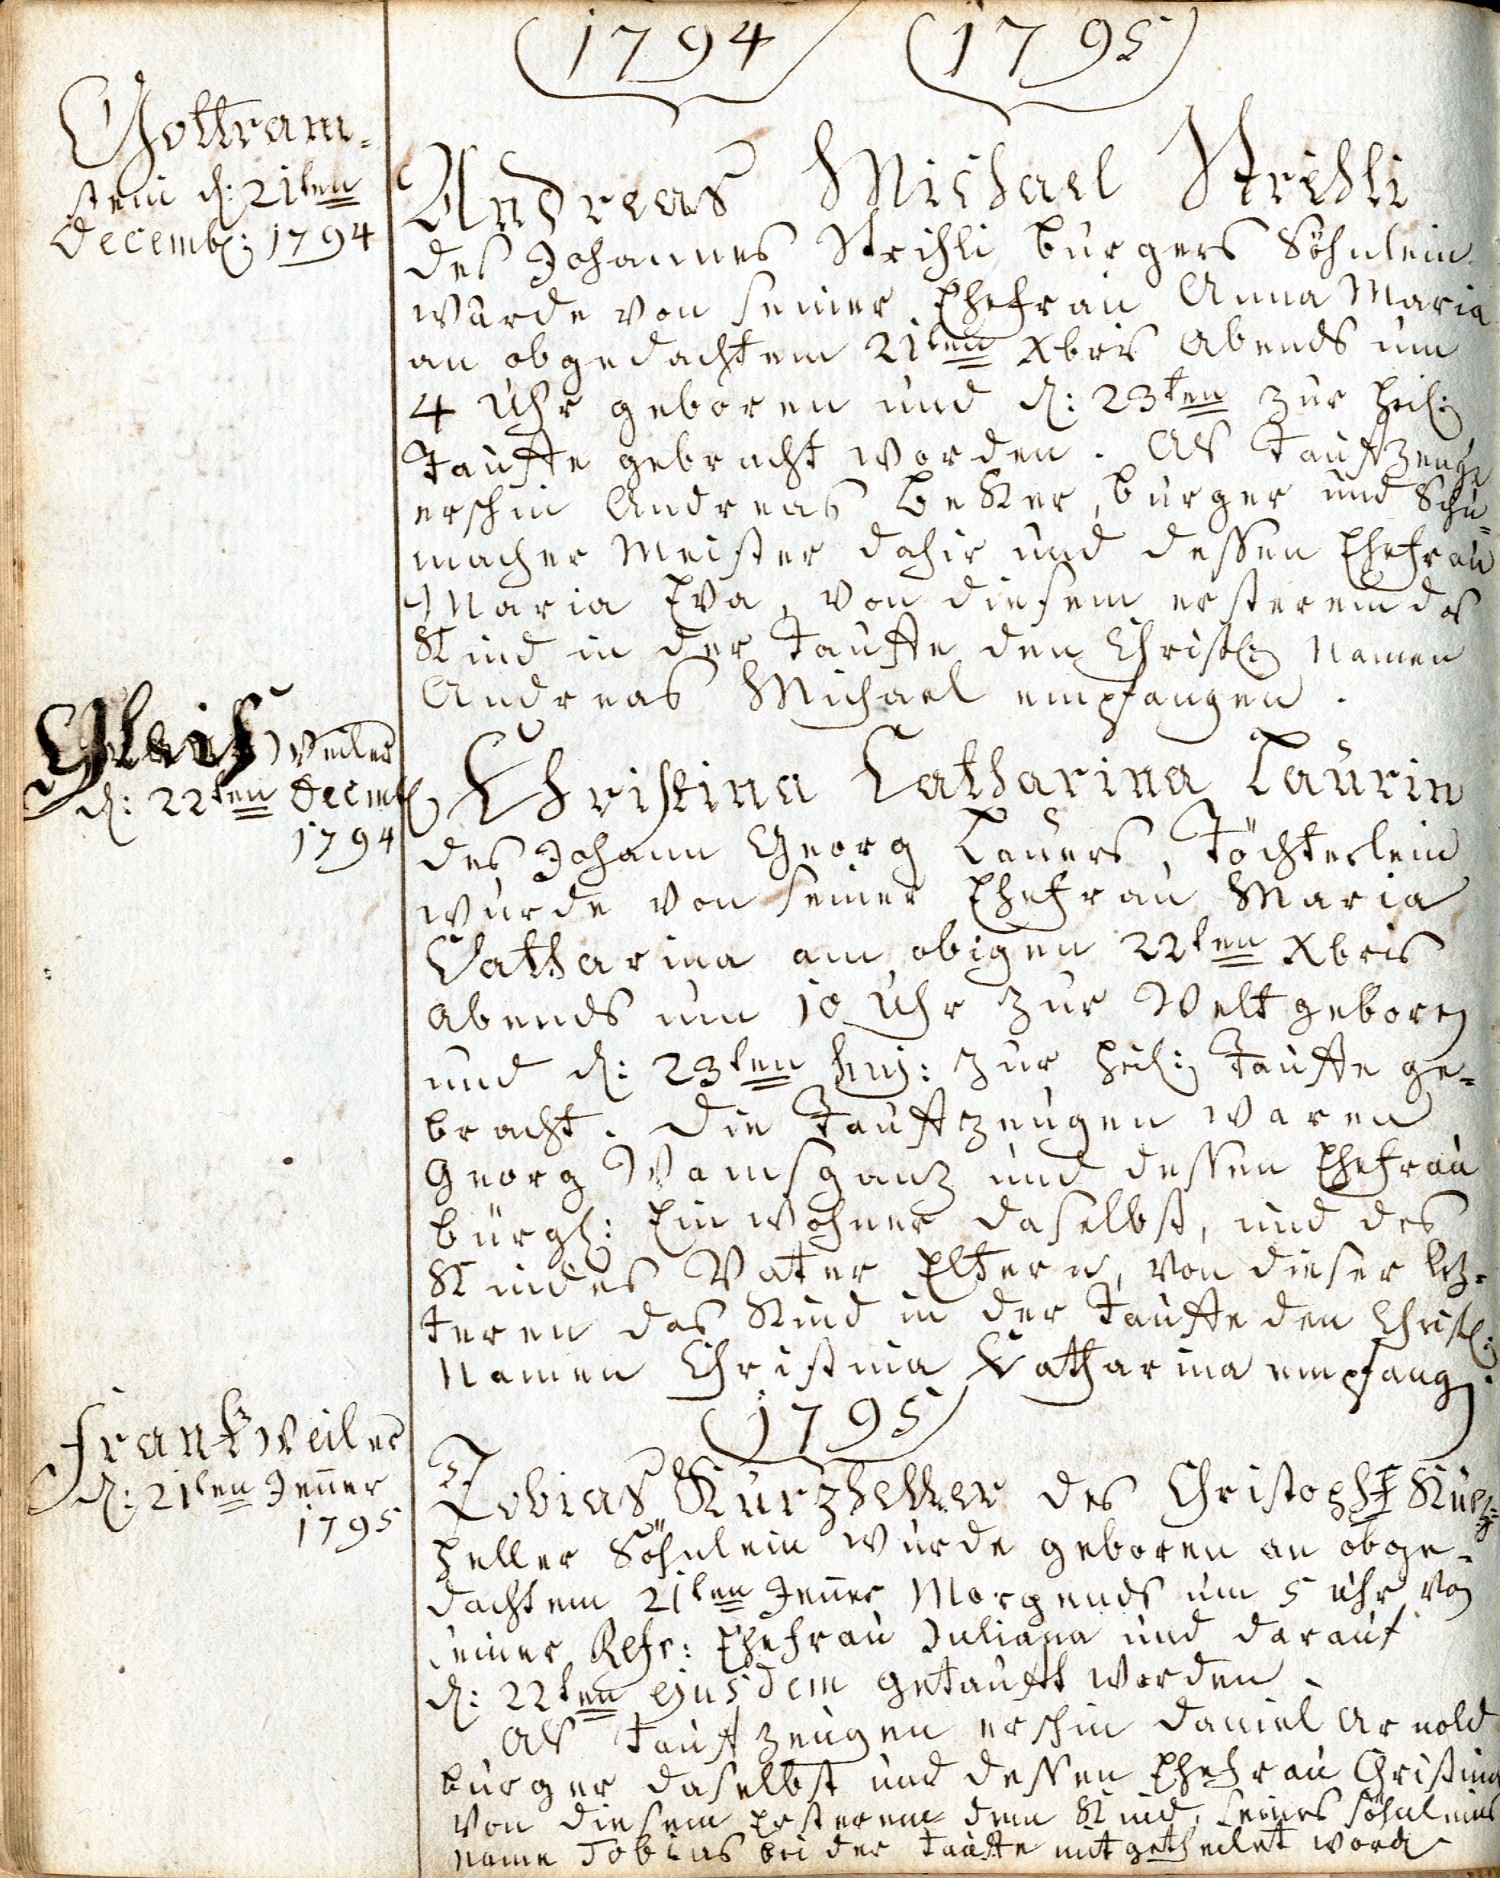 1794 1795
Gottram-
stein d: 21ten
Decemb: 1794
Andreas Michael Strihli
des Johannes Strihli burgers Söhnlein
wurde von seiner Ehefrau Anna Maria
an obgedachtem 21ten Xbris abends um
4 Uhr geboren und d: 23ten zur heil:
Tauffe gebracht worden. Als Taufzeuge
erschin Andreas Beker, burger und Schu-
macher Meister dahir und dessen Ehefrau
Maria Eva, von diesem ersterem das
Kind in der Tauffe den Christl: Namen
Andreas Michael empfangen.
Gleisweiler
d: 22ten Decemb
1794
Christina Catharina Laurin
des Johann Georg Lauers, Töchterlein
wurde von seiner Ehefrau Maria
Catharina am obigen 22ten Xbris
abends um 10 Uhr zur Welt geboren
und d: 23ten huj: zur heil: Tauffe ge-
bracht. Die Taufzeugen waren
Georg Wamsganz und dessen Ehefrau
bürgl: Einwohner daselbst, und des
Kindes Vater Eltern, von dieser lez-
teren das Kind in der Tauffe den Christl:
Namen Christina Catharina empfang
1795
Frankweiler
d: 21ten Jenner
1795
Tobias Kurzheller des Christophf Kurz-
heller Söhnlein wurde geboren an obge-
dachtem 21ten Jenner Morgends um 5 Uhr von
seiner Ehefrau Juliana und darauf
d: 22ten ejusdem getaufft worden.
Als Taufzeugen erschin Daniel Arnold
burger daselbst und dessen Ehefrau Christina
von diesem Ersterem dem Kind, seines Söhnleins
name Tobias bei der Tauffe mitgetheilet word